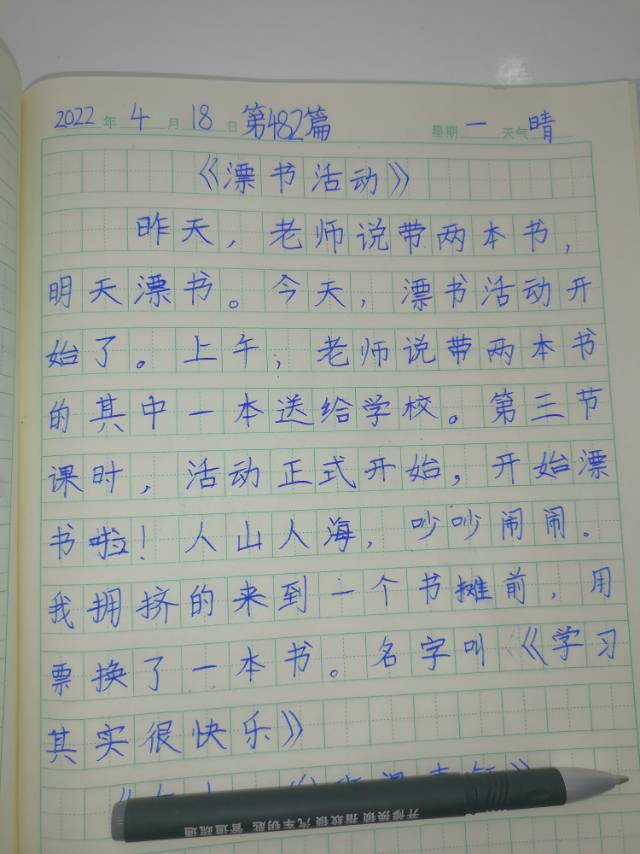 2022年4月18日 第482篇 星期一 天气晴
《漂书活动》
昨天，老师说带两本书，
明天漂书。今天，漂书活动开
始了。上午，老师说带两本书
的其中一本送给学校。第三节
课时，活动正式开始，开始漂
书啦！人山人海，吵吵闹闹.
我拥挤的来到一个书摊前，用
票换了一本书。名字叫《学习
其实很快乐》
开修换锁 指纹锁 汽车钥匙 管道疏通